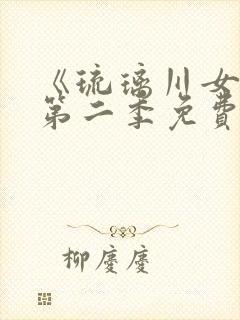 《琉璃川女
第二季免費
柳慶慶